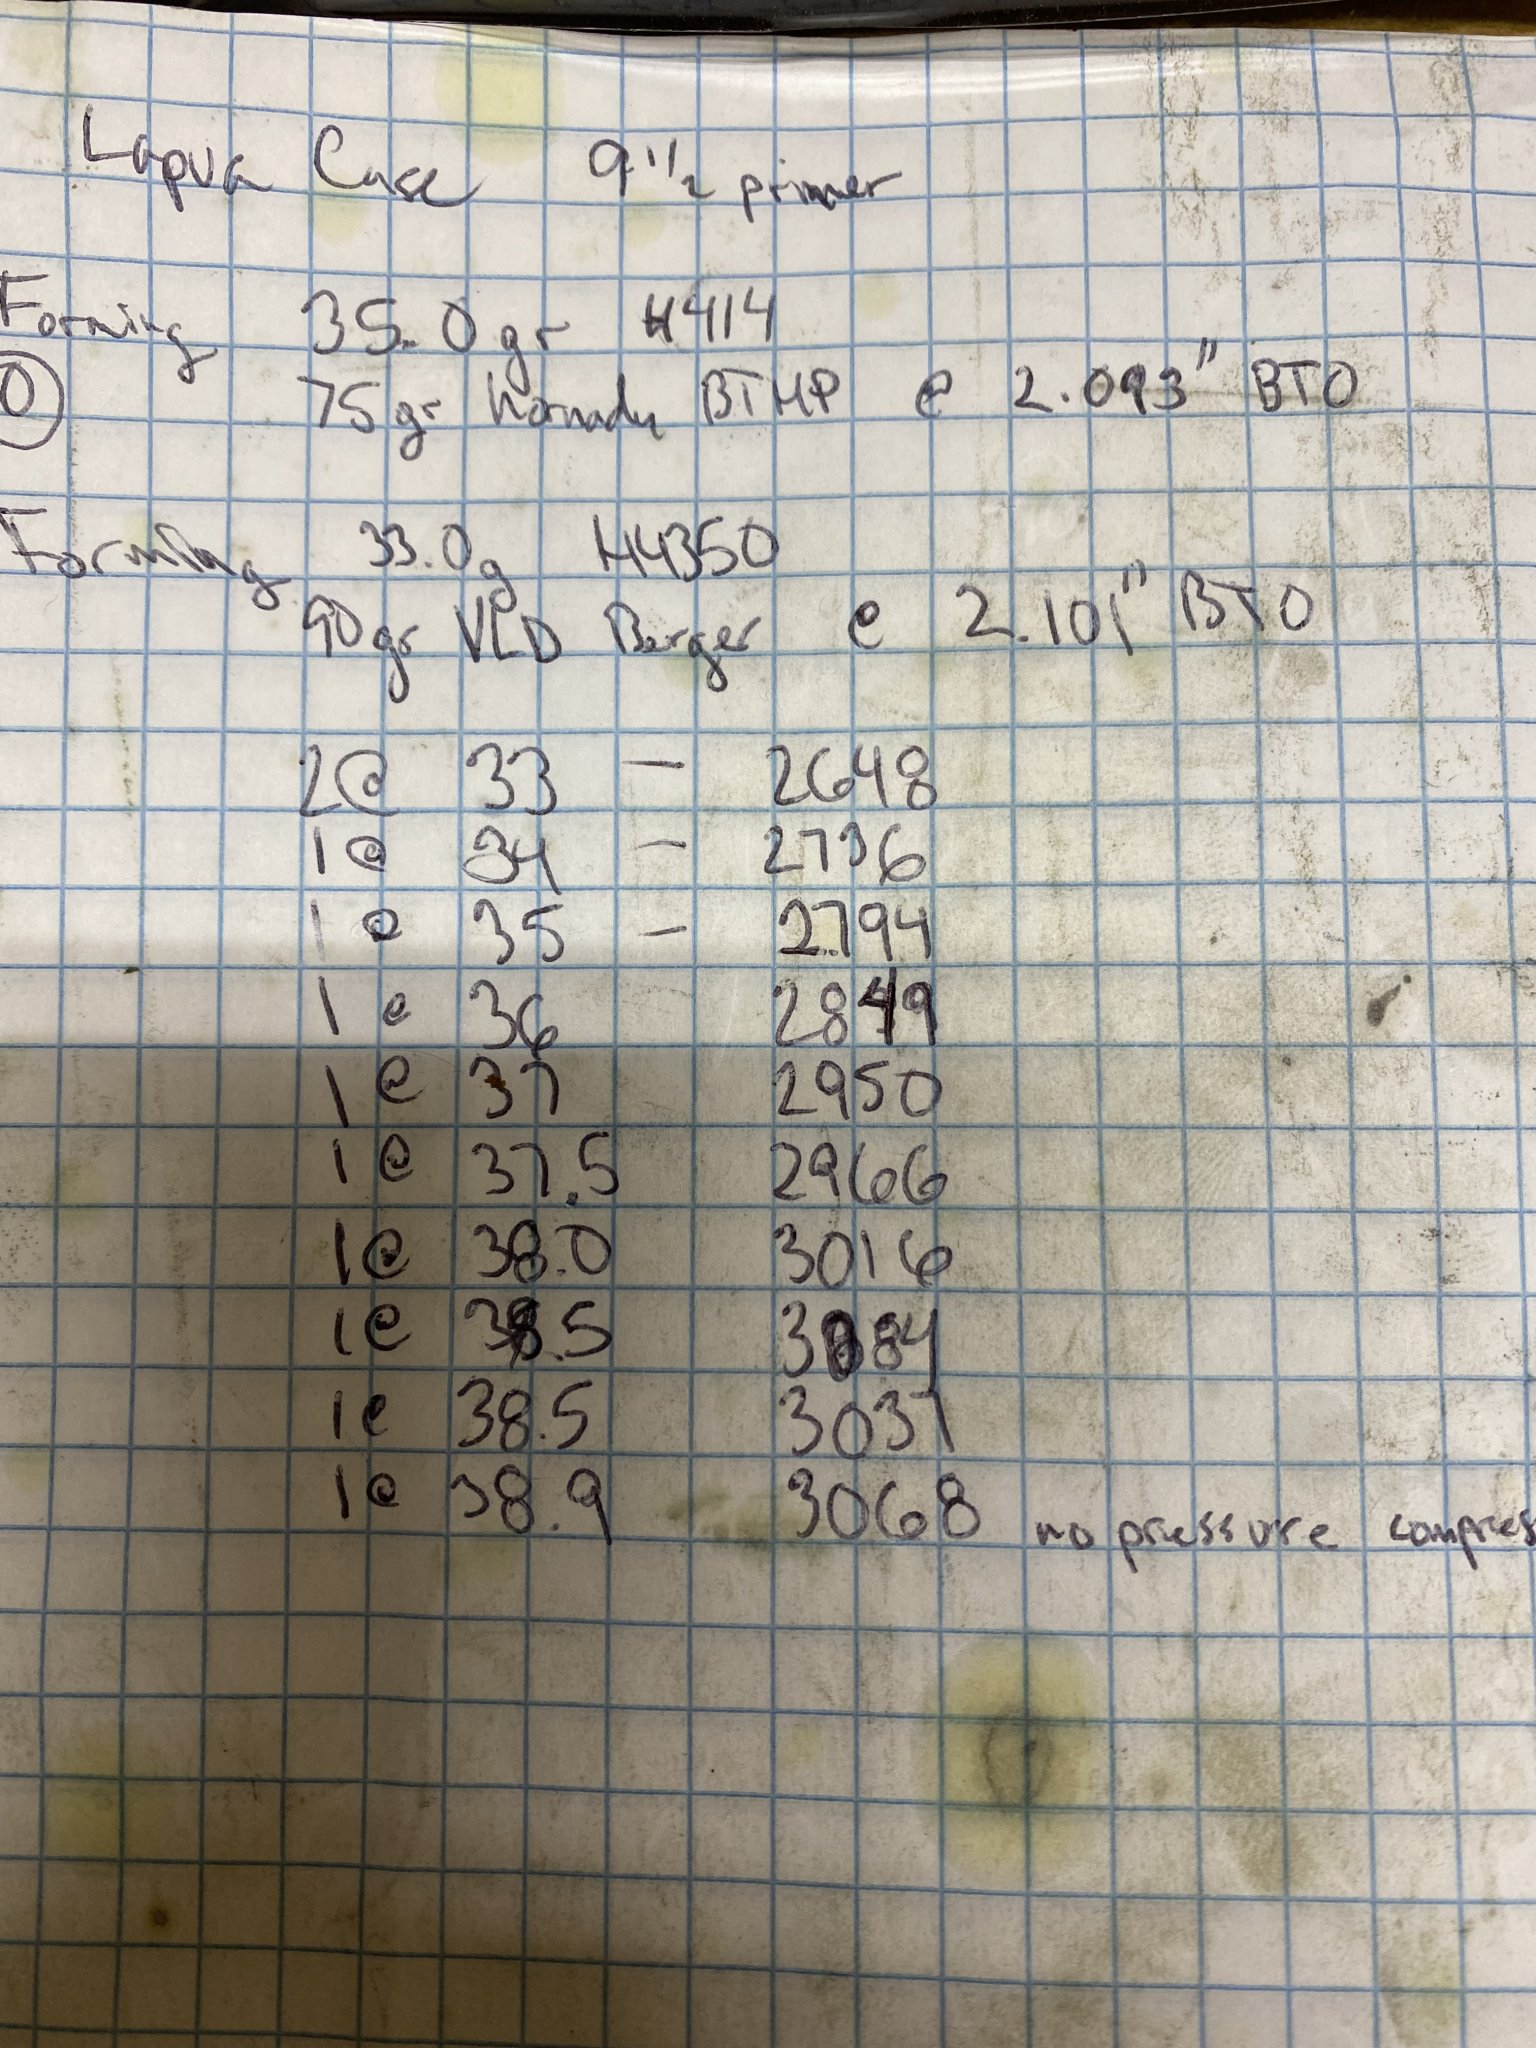 Lapua Case 9 1/2 primer
Forming 35.0gr H414
0 75gr Hornady BTHP @ 2.093" BTO
Forming 33.0g H4350
90gr VLD Berger @ 2.101" BTO
2@ 33 — 2648
1@ 34 — 2736
1@ 35 — 2794
1@ 36 2849
1@ 37 2950
1@ 37.5 2966
1@ 38.0 3016
1@ 38.5 3084
1@ 38.5 3037
1@ 38.9 3068 no pressure compres